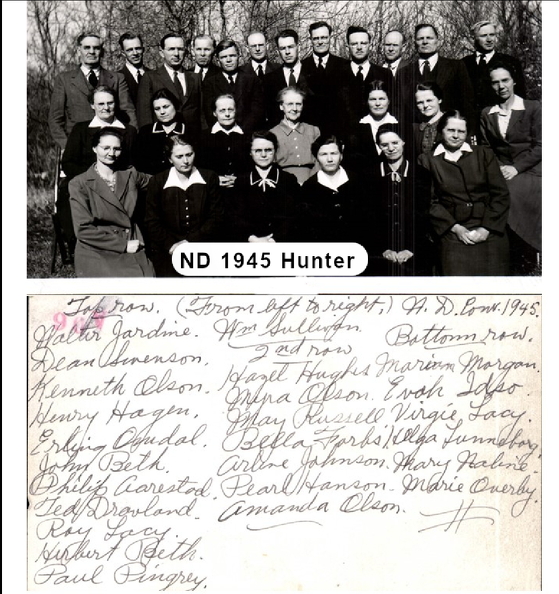 ND 1945 Hunter
Top row. (From left to right,) N. D. Conv. 1945.
Walter Jardine. Wm Sullivan
Dean Swenson.
Kenneth Olson.
Henry Hagen.
Erling Omdal.
John Beth.
Philip Aarestad.
Ted Dravland.
Roy Lacy.
Hirbert Beth.
Paul Pingrey.
2nd row
Hazel Hughes
Mina Olson.
May Russell
Bella Forbs
Arline Johnson.
Pearl Hanson.
Amanda Olson.
Bottom row.
Mariam Morgan.
Evah Idso
Virgie Lacy.
Olga Tunneborg.
Mary Maline.
Marie Overby.